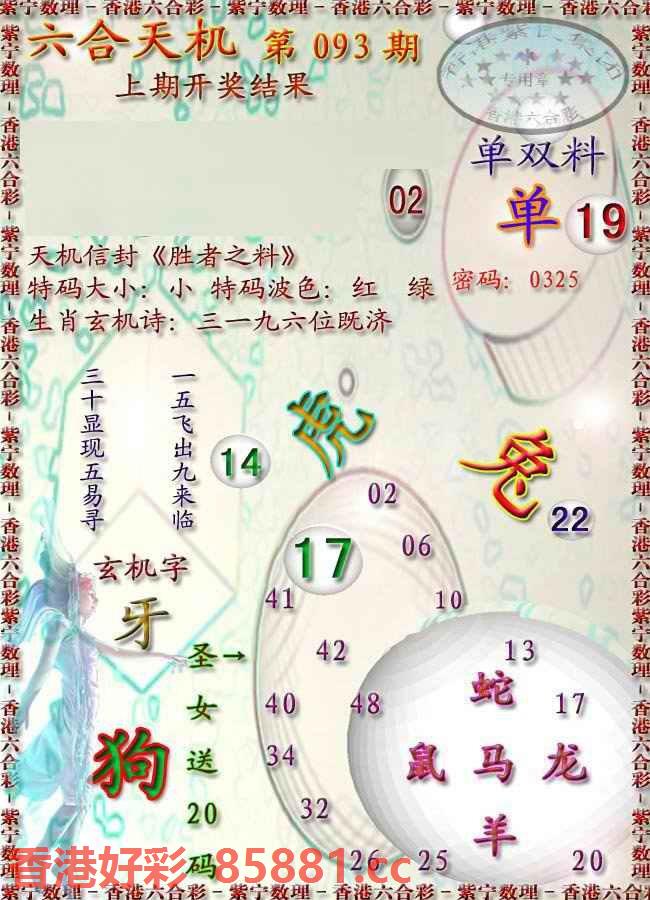 紫宁数理－香港六合彩－紫宁数理－香港六合彩－紫宁数理－香港六合彩－紫宁数理－香港六合彩
六合天机 第 093 期
上期开奖结果
专用章
香港六合彩
02
单双料
单 19
天机信封《胜者之料》
特码大小：小 特码波色：红 绿
密码：0325
生肖玄机诗：三一九六位既济
一五飞出九来临
三十显现五易寻
14
虎
兔
22
17
玄机字
牙
狗
圣女送20码
02
06
41
10
42
13
40
48
17
34
32
26
25
20
蛇
鼠 马 龙
羊
香港好彩 85881.cc
紫宁数理－香港六合彩－紫宁数理－香港六合彩－紫宁数理－香港六合彩－紫宁数理－香港六合彩